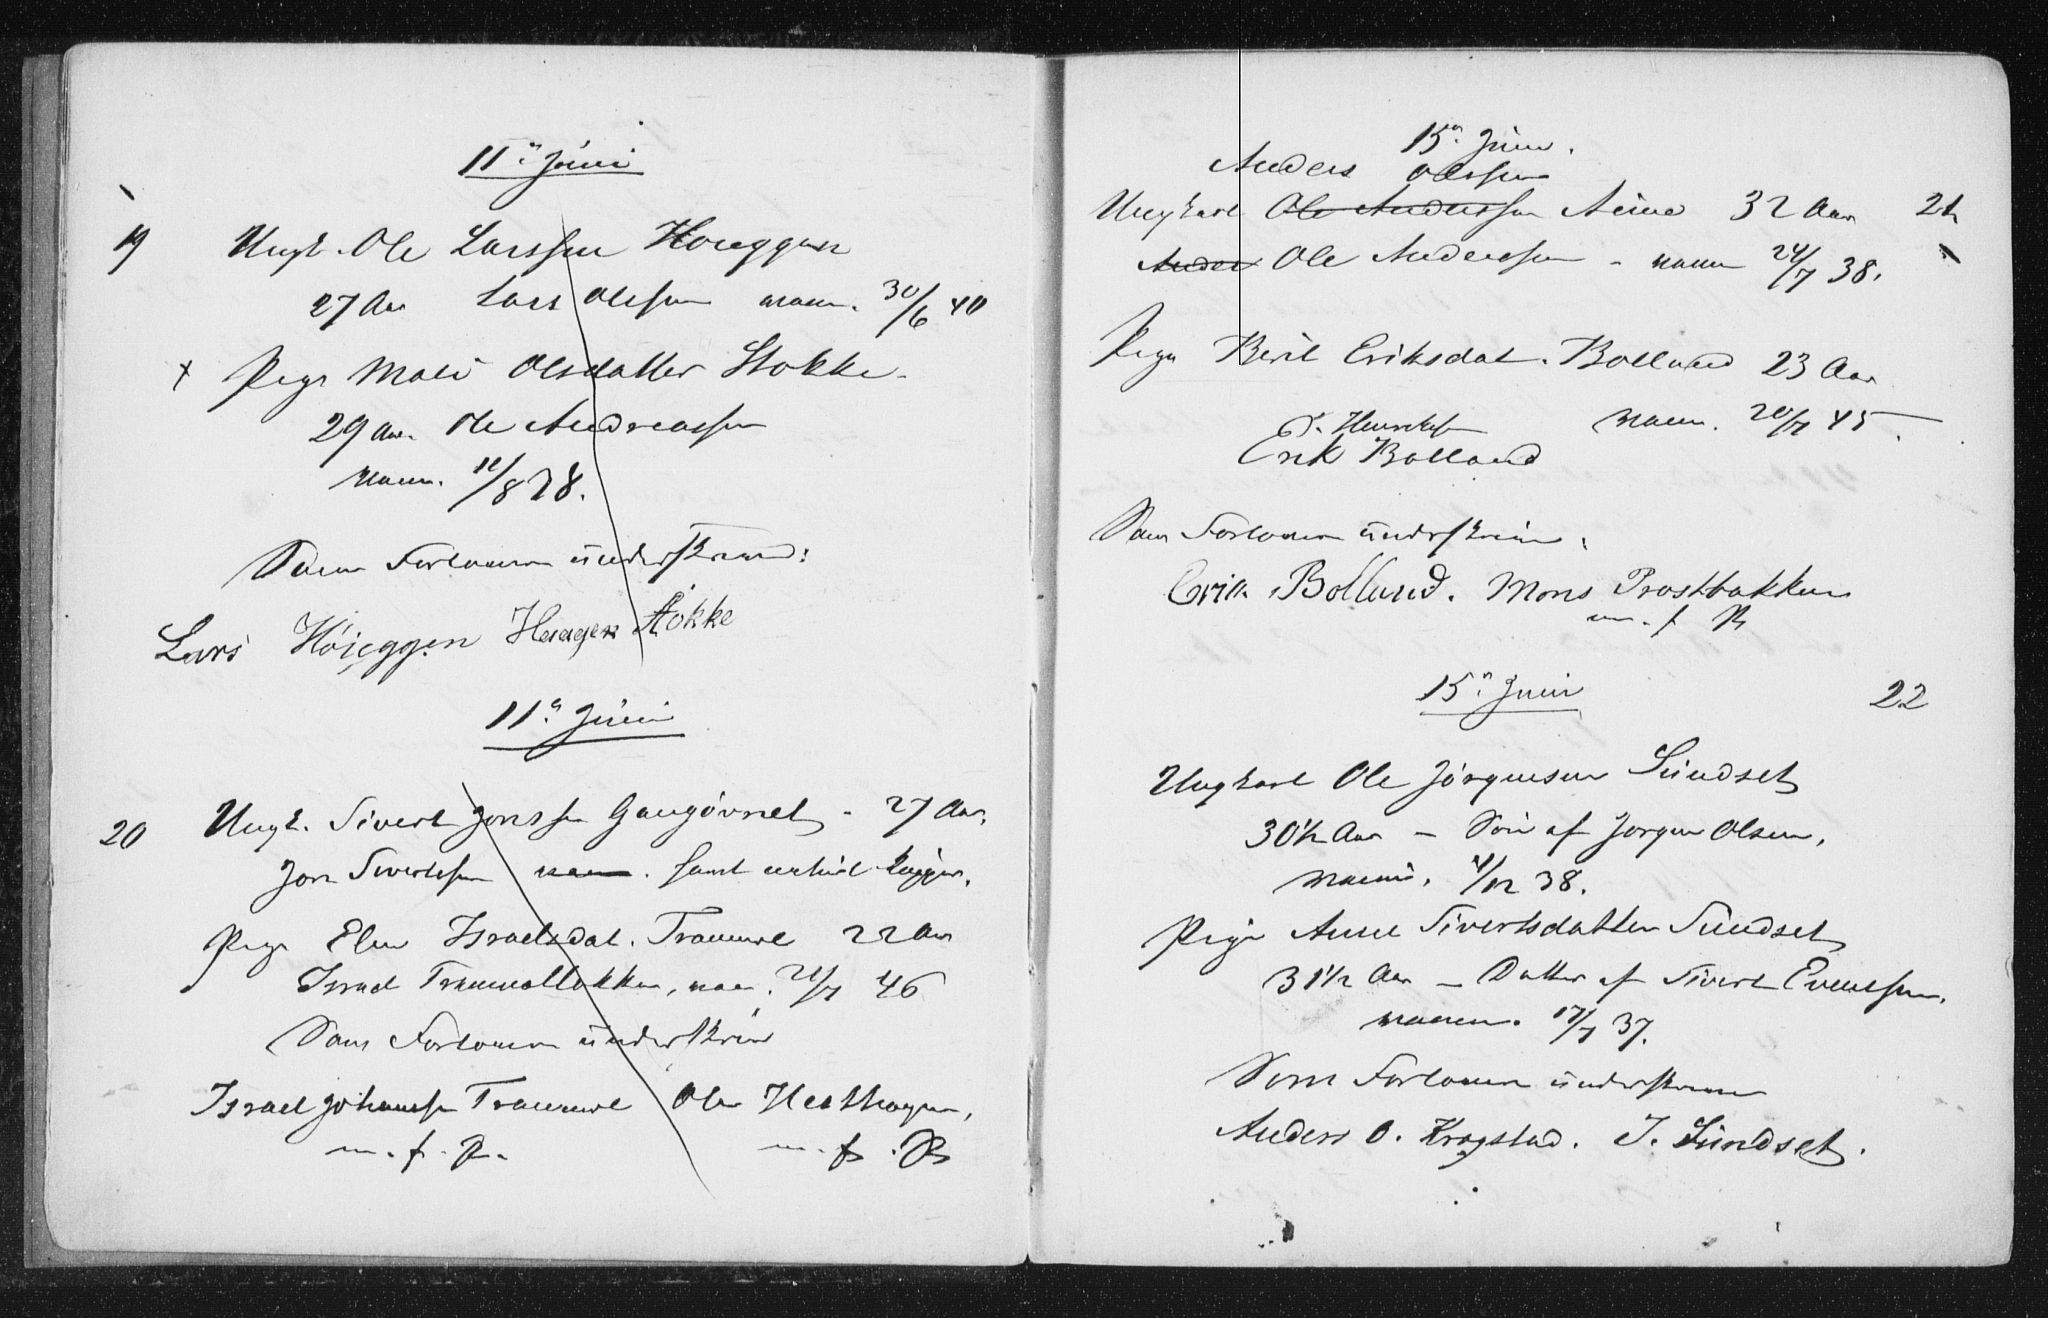 11te Juni
19 Ungk. Ole Larssen Hoieggen
27 Aar Lars Olssen vacc. 30/6 40
x Pige Mali Olsdatter Stokke
29 Aar. Ole Andreassen
vacc. 11/8 28.
Som Forlovere underskrive:
Lars Höieggen Haagen Stokke
11te Juni
20 Ungk. Sivert Jonssen Gaugövnet - 27 Aar,
Jon Sivertssen vacc.
Pige Elen Israelsdat. Tranmel 22 Aar
Israel Tranmelbakken, vac. 21/7 46
Som Forlovere underskrive
Israel Johanssen Tranmel Ole Hesthagen,
m. f. P. m. f. P
15de Juni.
Anders Olssen
Ungkarl Ole Anderssen Aune 32 Aar 21
Anders Ole Anderssen - vacc 24/7 38.
Pige Berit Eriksdat. Bolland 23 Aar
vacc. 20/7 45.
Erik Bolland
Som Forlovere underskrive.
Erik Bolland. Mons Prostbakken
m. f P
15de Juni 22
Ungkarl Ole Jörgensen Sundset
30 1/2 Aar - Sön af Jørgen Olsen,
vaccin. 11/12 38.
Pige Anne Sivertsdatter Sundset
31 1/2 Aar - Datter af Sivert Evenssen,
vaccin. 17/7 37.
Som Forlovere underskrive
Anders O. Krogstad. J. Sundset.